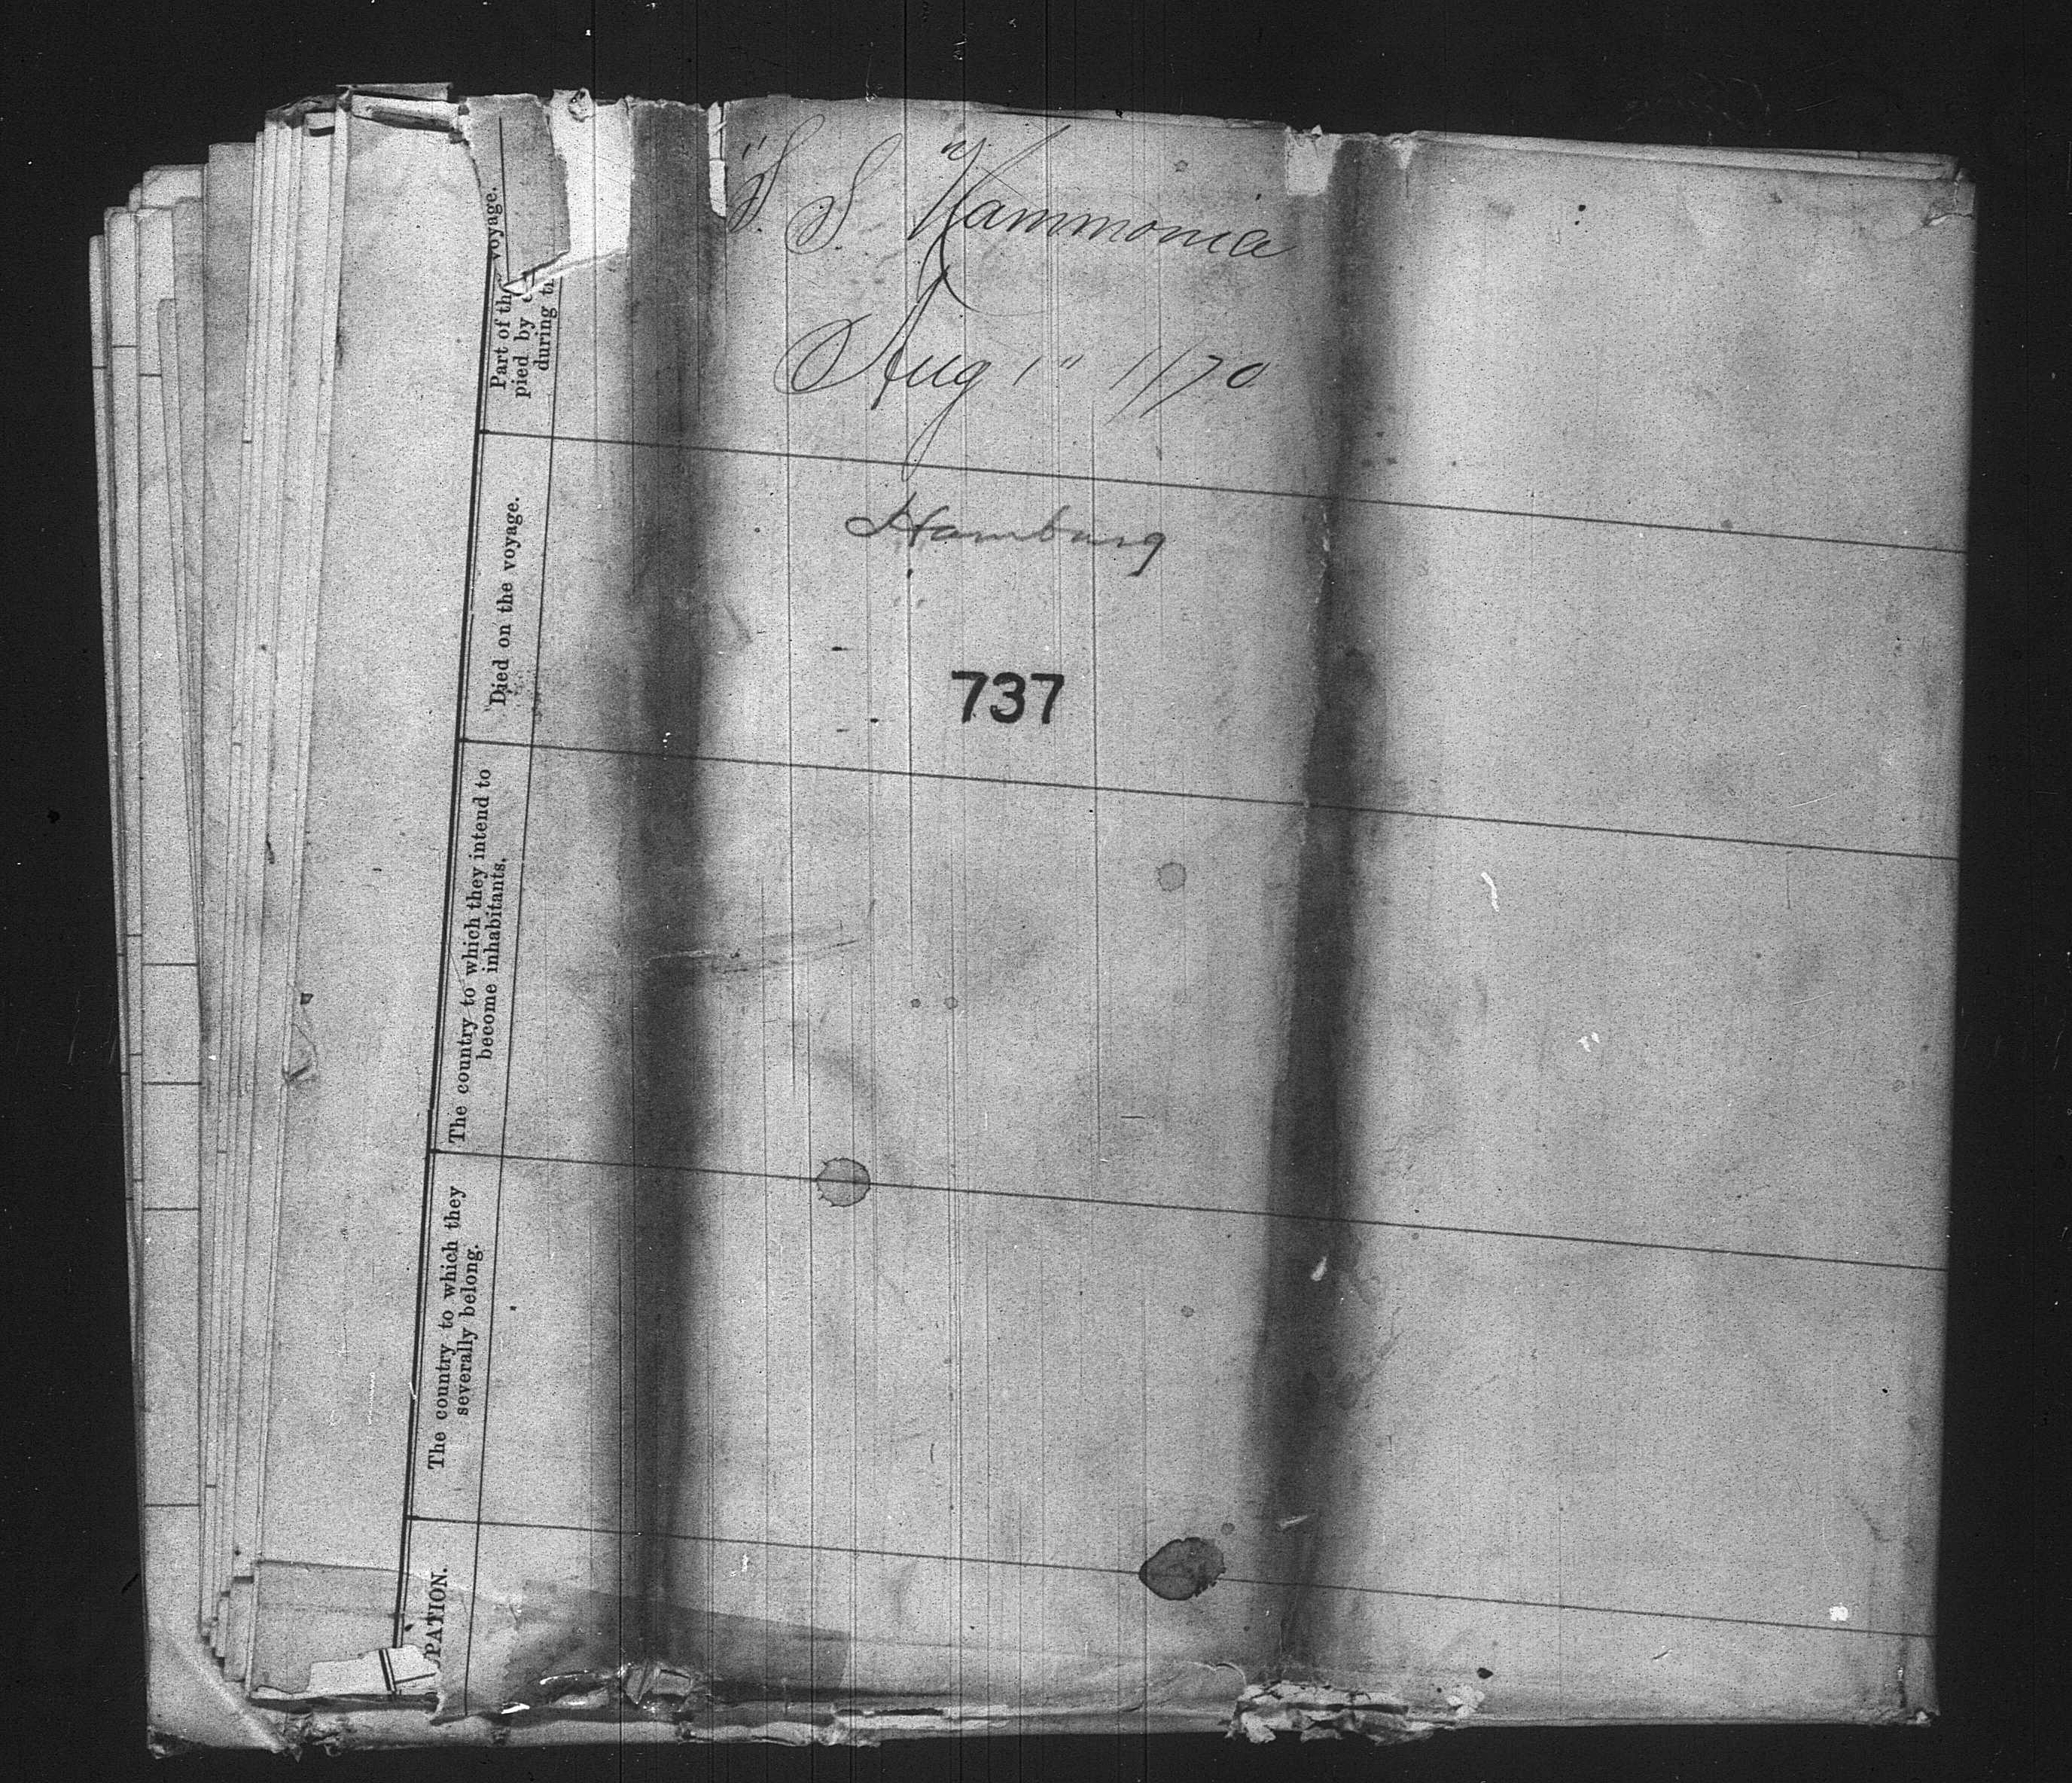 "S. S. "Hammonia
Aug 1" 1870
Hamburg
737
Part of the voyage.
pied by
during
Died on the voyage.
The country to which they intend to
become inhabitants.
The country to which they
severally belong.
PATION.